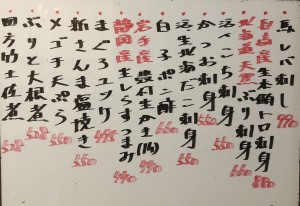 馬レバ刺し 990
台湾産生本鮪トロ刺身
北海道天然ぶり刺身
かつお刺身 550
活〆いさき刺身 550
活生北海だこ刺身 660
白子ポン酢 660
岩手産蒸し生かき(1ヶ) 440
静岡産生しらすつまみ 440
まぐろユッケ 495
新さんま塩焼き 660
メゴチ天ぷら 550
ぶりと大根煮 528
四方竹土佐煮 528